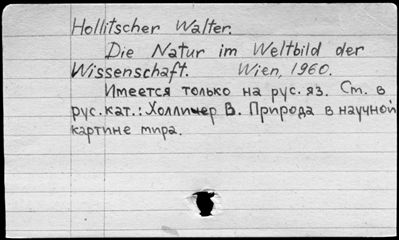 Hollitscher Walter.
Die Natur im Weltbild der
Wissenschaft. Wien, 1960.
Имеется только на рус. яз. См. в
рус. кат.: Холличер В. Природа в научной
картине мира.